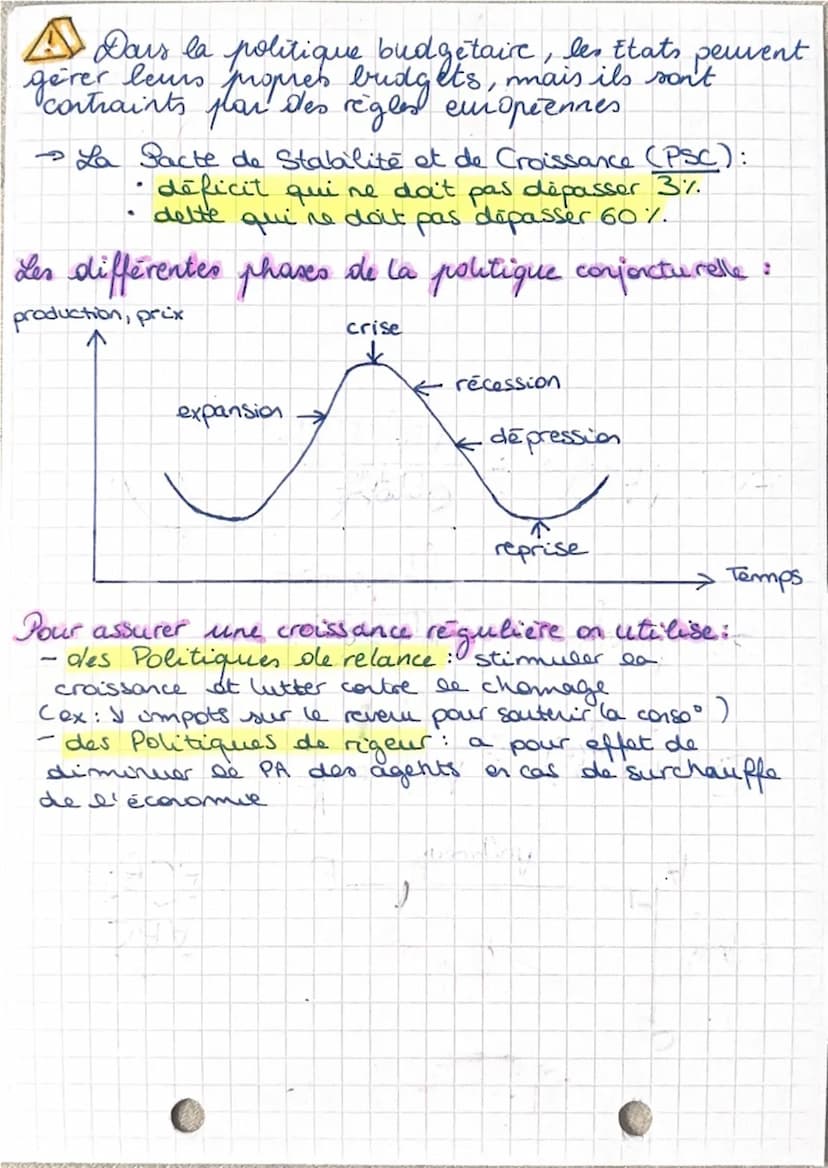 Dans la politique budgétaire, les Etats peuvent
gérer leurs propres budgets, mais ils sont
contraints par des règles européennes
→ La Pacte de Stabilité et de Croissance (PSC) :
• déficit qui ne doit pas dépasser 3%.
• dette qui ne doit pas dépasser 60%.
Les différentes phases de la politique conjoncturelle :
production, prix
crise
récession
expansion
dépression
reprise
Temps
Pour assurer une croissance régulière on utilise :
- des Politiques de relance : stimuler la
croissance et lutter contre le chomage
(ex : ↘ impots sur le revenu pour soutenir la conso°)
- des Politiques de rigeur : a pour effet de
diminuer le PA des agents en cas de surchauffe
de l'économie